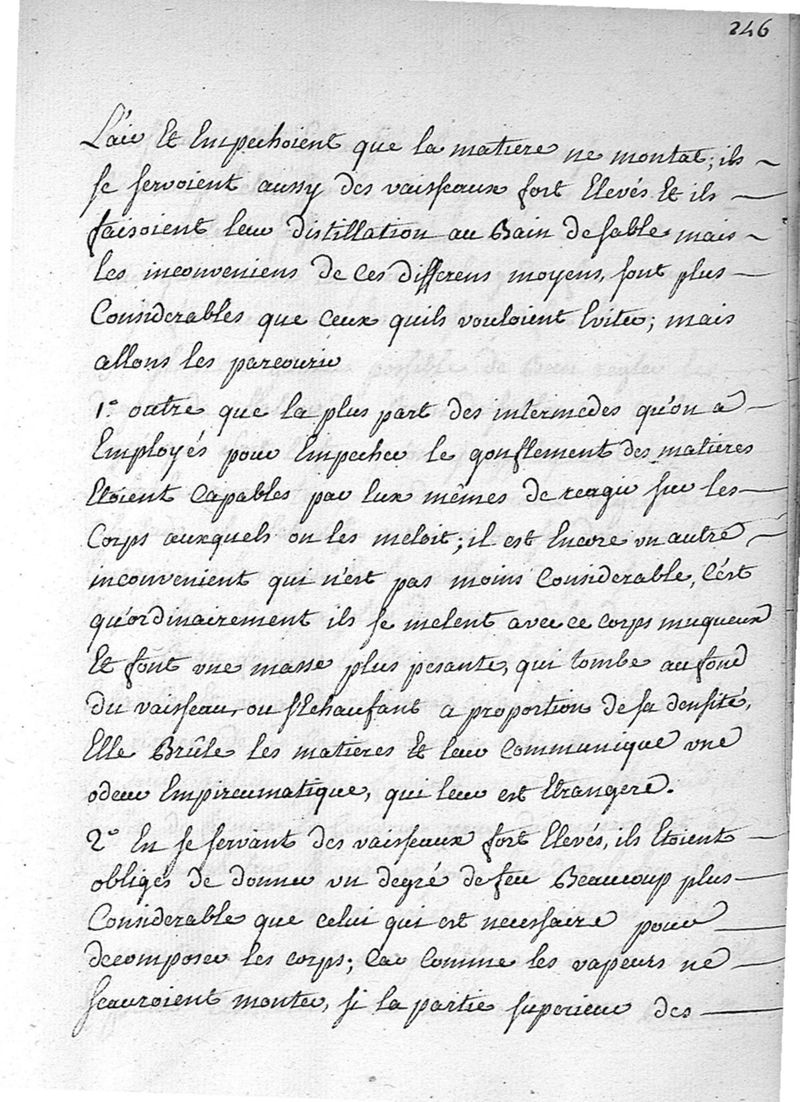 246
L'air Et Empechoient que la matiere ne montat; ils
se servoient aussy des vaisseaux fort Elevés Et ils
faisoient leur distillation au Bain de sable mais
les inconveniens de Ces differens moyens, sont plus
Considerables que Ceux quils vouloient Eviter; mais
allons les parcourir
1.° outre que la plus part des intermedes qu'on a
Employés pour Empecher le gonflement des matieres
Etoient Capables par Eux mêmes de reagir sur les
Corps auxquels on les meloit; il est Encore un autre
inconvenient qui n'est pas moins Considerable, C'est
qu'ordinairement ils se melent avec ce corps muqueux
Et font une masse plus pesante, qui tombe au fond
du vaisseau, ou s'Echaufant a proportion de sa densité,
Elle Brûle les matieres Et leur Communique une
odeur Empireumatique, qui leur est Etrangere.
2° En se servant des vaisseaux fort Elevés, ils Etoient
obligés de donner un degré de feu Beaucoup plus
Considerable que celui qui est necessaire pour
decomposer les corps; Car Comme les vapeurs ne
scauroient monter, si la partie superieur des